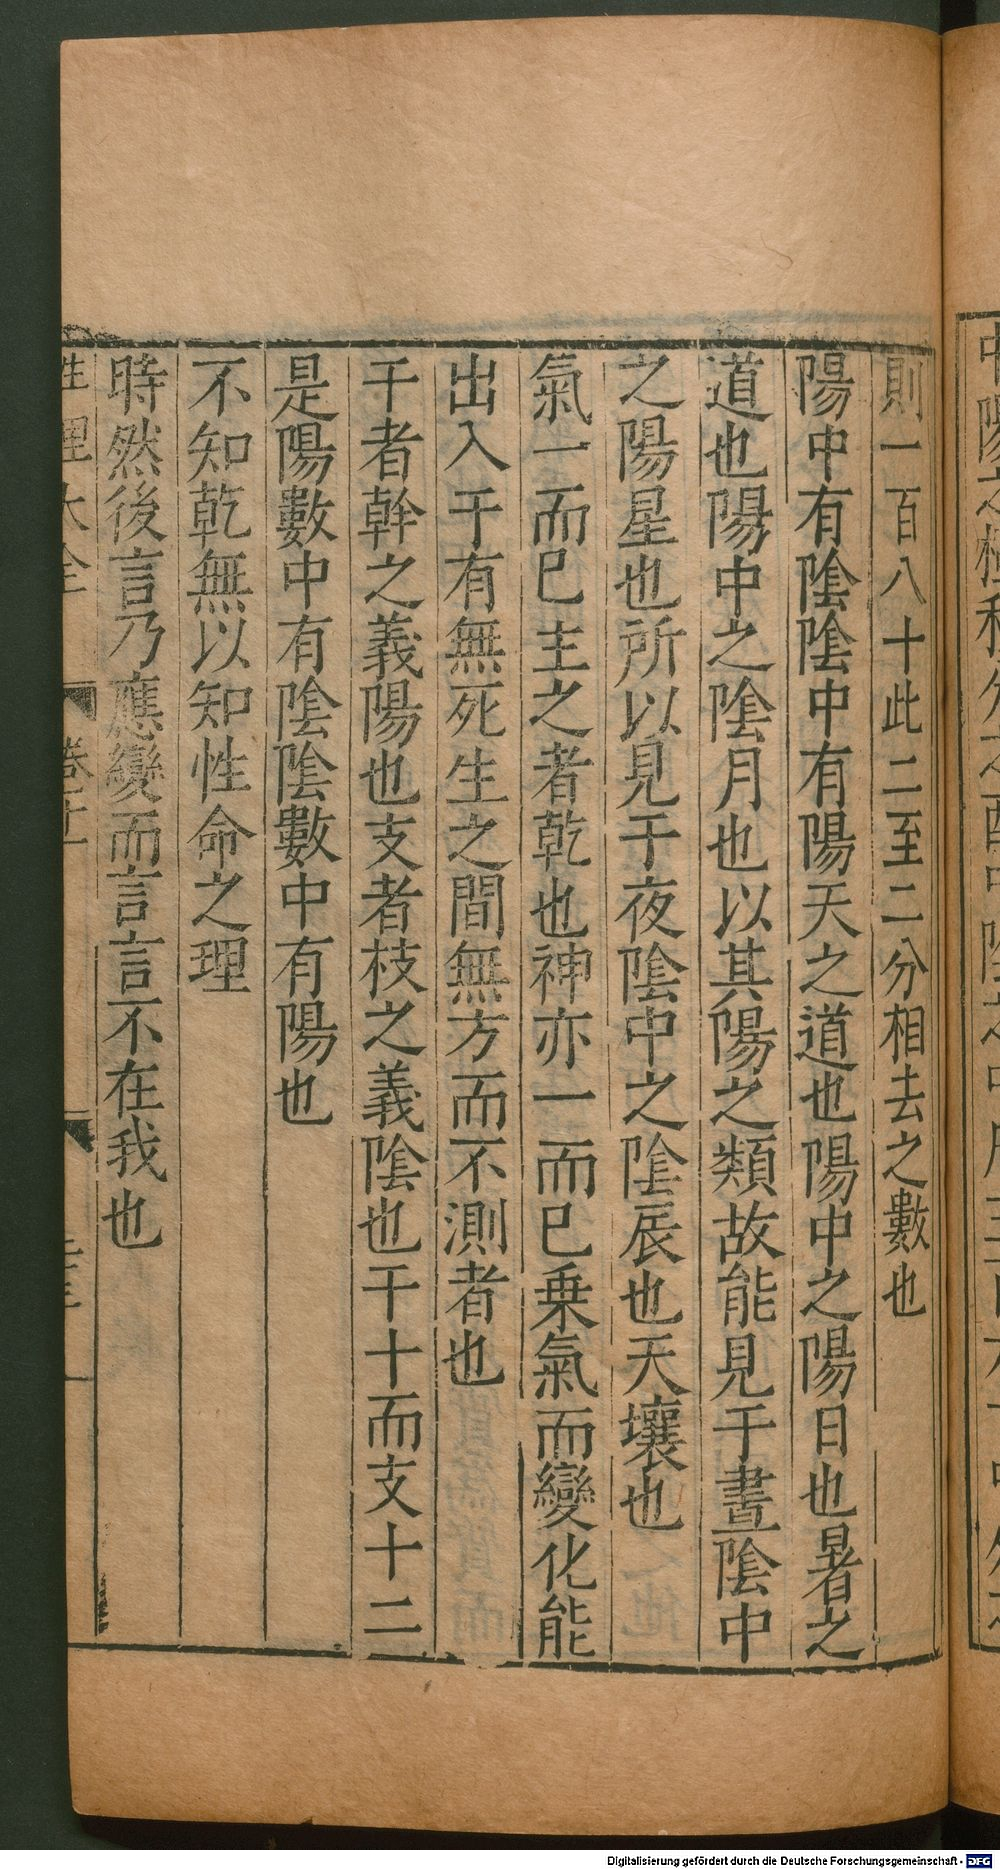 則一百八十此二至二分相去之數也
陽中有陰陰中有陽天之道也陽中之陽日也暑之
道也陽中之陰月也以其陽之類故能見于晝陰中
之陽星也所以見于夜陰中之陰辰也天壤也
氣一而已主之者乾也神亦一而已乗氣而變化能
出入于有無死生之間無方而不測者也
干者幹之義陽也支者枝之義陰也干十而支十二
是陽數中有陰陰數中有陽也
不知乾無以知性命之理
時然後言乃應變而言言不在我也
性理大全
卷十二
Digitalisierung gefördert durch die Deutsche Forschungsgemeinschaft - DFG